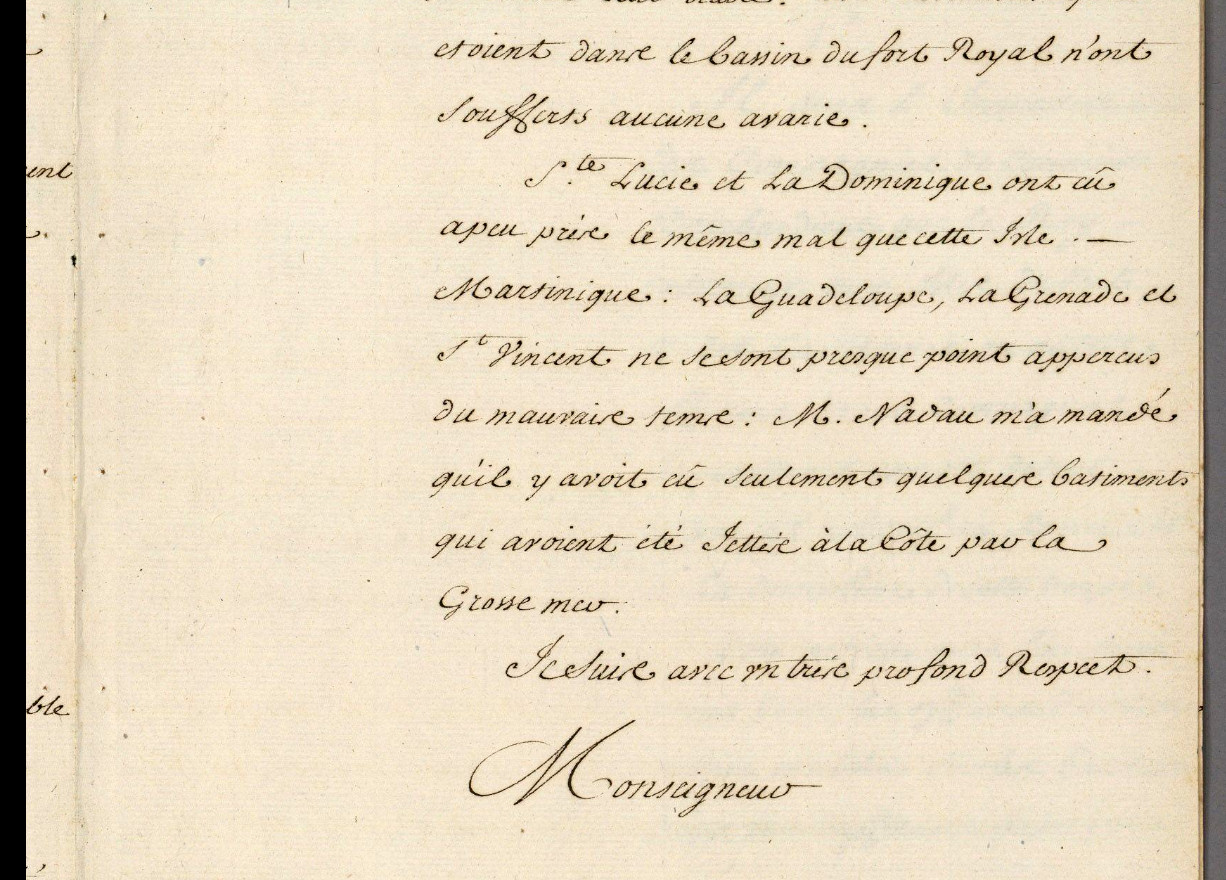 etoient dans le bassin du fort Royal n'ont
soufferts aucune avarie.
S.te Lucie et La Dominique ont eû
apeu prés le même mal que cette Isle. —
Martinique : La Guadeloupe, La Grenade et
S.t Vincent ne se sont presque point appercus
du mauvais tems : M. Nadau m'a mandé
qu'il y avoit eû seulement quelques batiments
qui avoient été Jettés à la Côte par la
Grosse mer.
Je suis avec un trés profond Respect.
Monseigneur
ent
ble